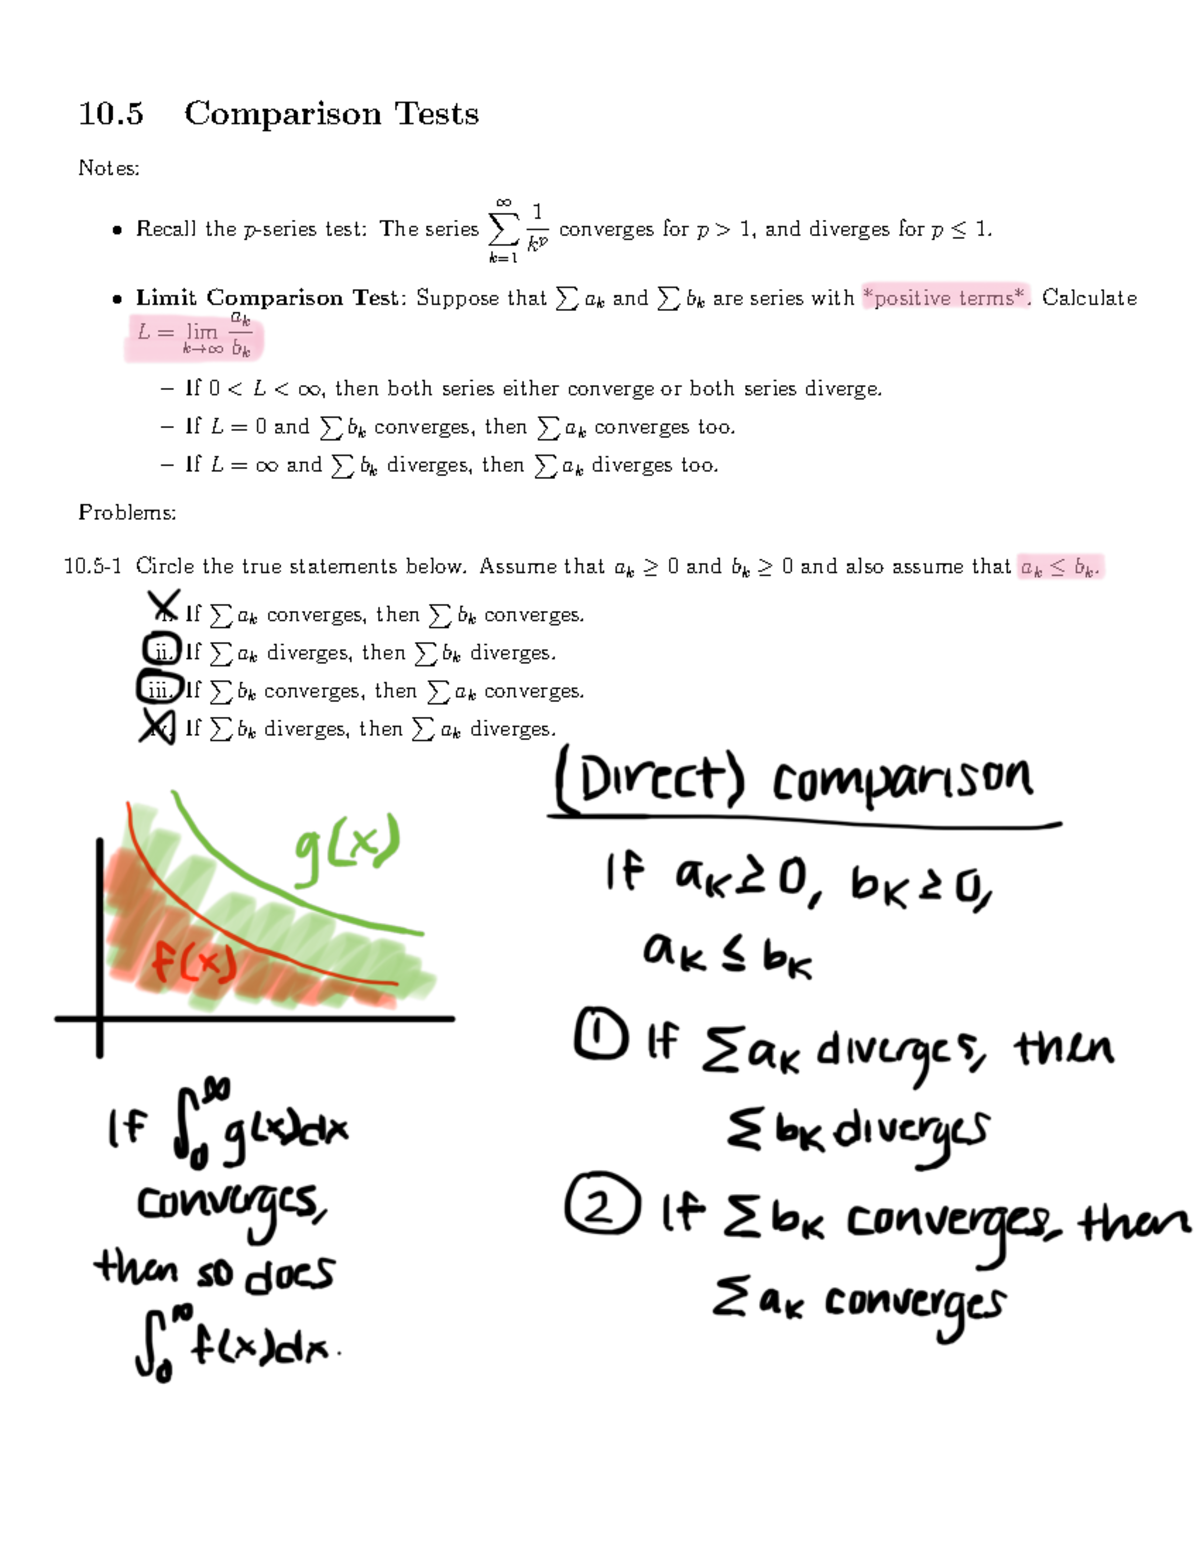 10.5 Comparison Tests
Notes:
• Recall the p-series test: The series ∑_{k=1}^{∞} 1/k^p converges for p > 1, and diverges for p ≤ 1.
• Limit Comparison Test: Suppose that ∑ a_k and ∑ b_k are series with *positive terms*. Calculate
L = lim_{k→∞} a_k/b_k
– If 0 < L < ∞, then both series either converge or both series diverge.
– If L = 0 and ∑ b_k converges, then ∑ a_k converges too.
– If L = ∞ and ∑ b_k diverges, then ∑ a_k diverges too.
Problems:
10.5-1 Circle the true statements below. Assume that a_k ≥ 0 and b_k ≥ 0 and also assume that a_k ≤ b_k.
If ∑ a_k converges, then ∑ b_k converges.
ii. If ∑ a_k diverges, then ∑ b_k diverges.
iii. If ∑ b_k converges, then ∑ a_k converges.
If ∑ b_k diverges, then ∑ a_k diverges.
g(x)
f(x)
If ∫_0^∞ g(x)dx
converges,
then so does
∫_0^∞ f(x)dx.
(Direct) comparison
If a_k ≥ 0, b_k ≥ 0,
a_k ≤ b_k
① If ∑ a_k diverges, then
∑ b_k diverges
② If ∑ b_k converges, then
∑ a_k converges